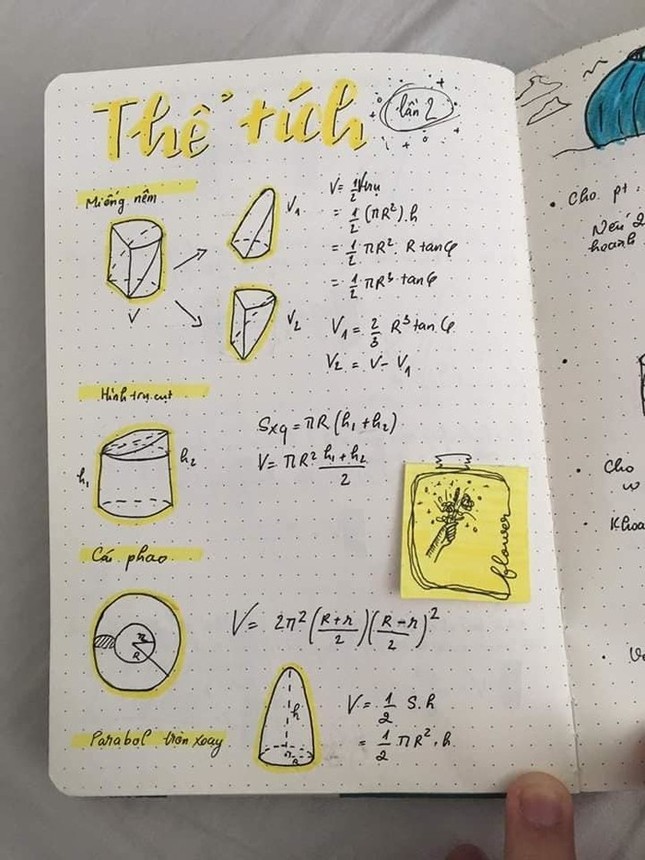 Thể tích
lần 2
Miếng nêm
V
V₁
V₂
V = 1/2 Vtrụ
= 1/2 (πR²).h
= 1/2 πR². R tanφ
= 1/2 πR³ tanφ
V₁ = 2/3 R³ tanφ
V₂ = V - V₁
Hình trụ cụt
h₁
h₂
Sxq = πR(h₁ + h₂)
V = πR² (h₁ + h₂)/2
flower
Cái phao
r
R
V = 2π² ((R+r)/2) ((R-r)/2)²
Parabol tròn xoay
h
R
V = 1/2 S.h
= 1/2 πR².h
• Cho pt :
Nếu
hoành
• Cho
• Khoa